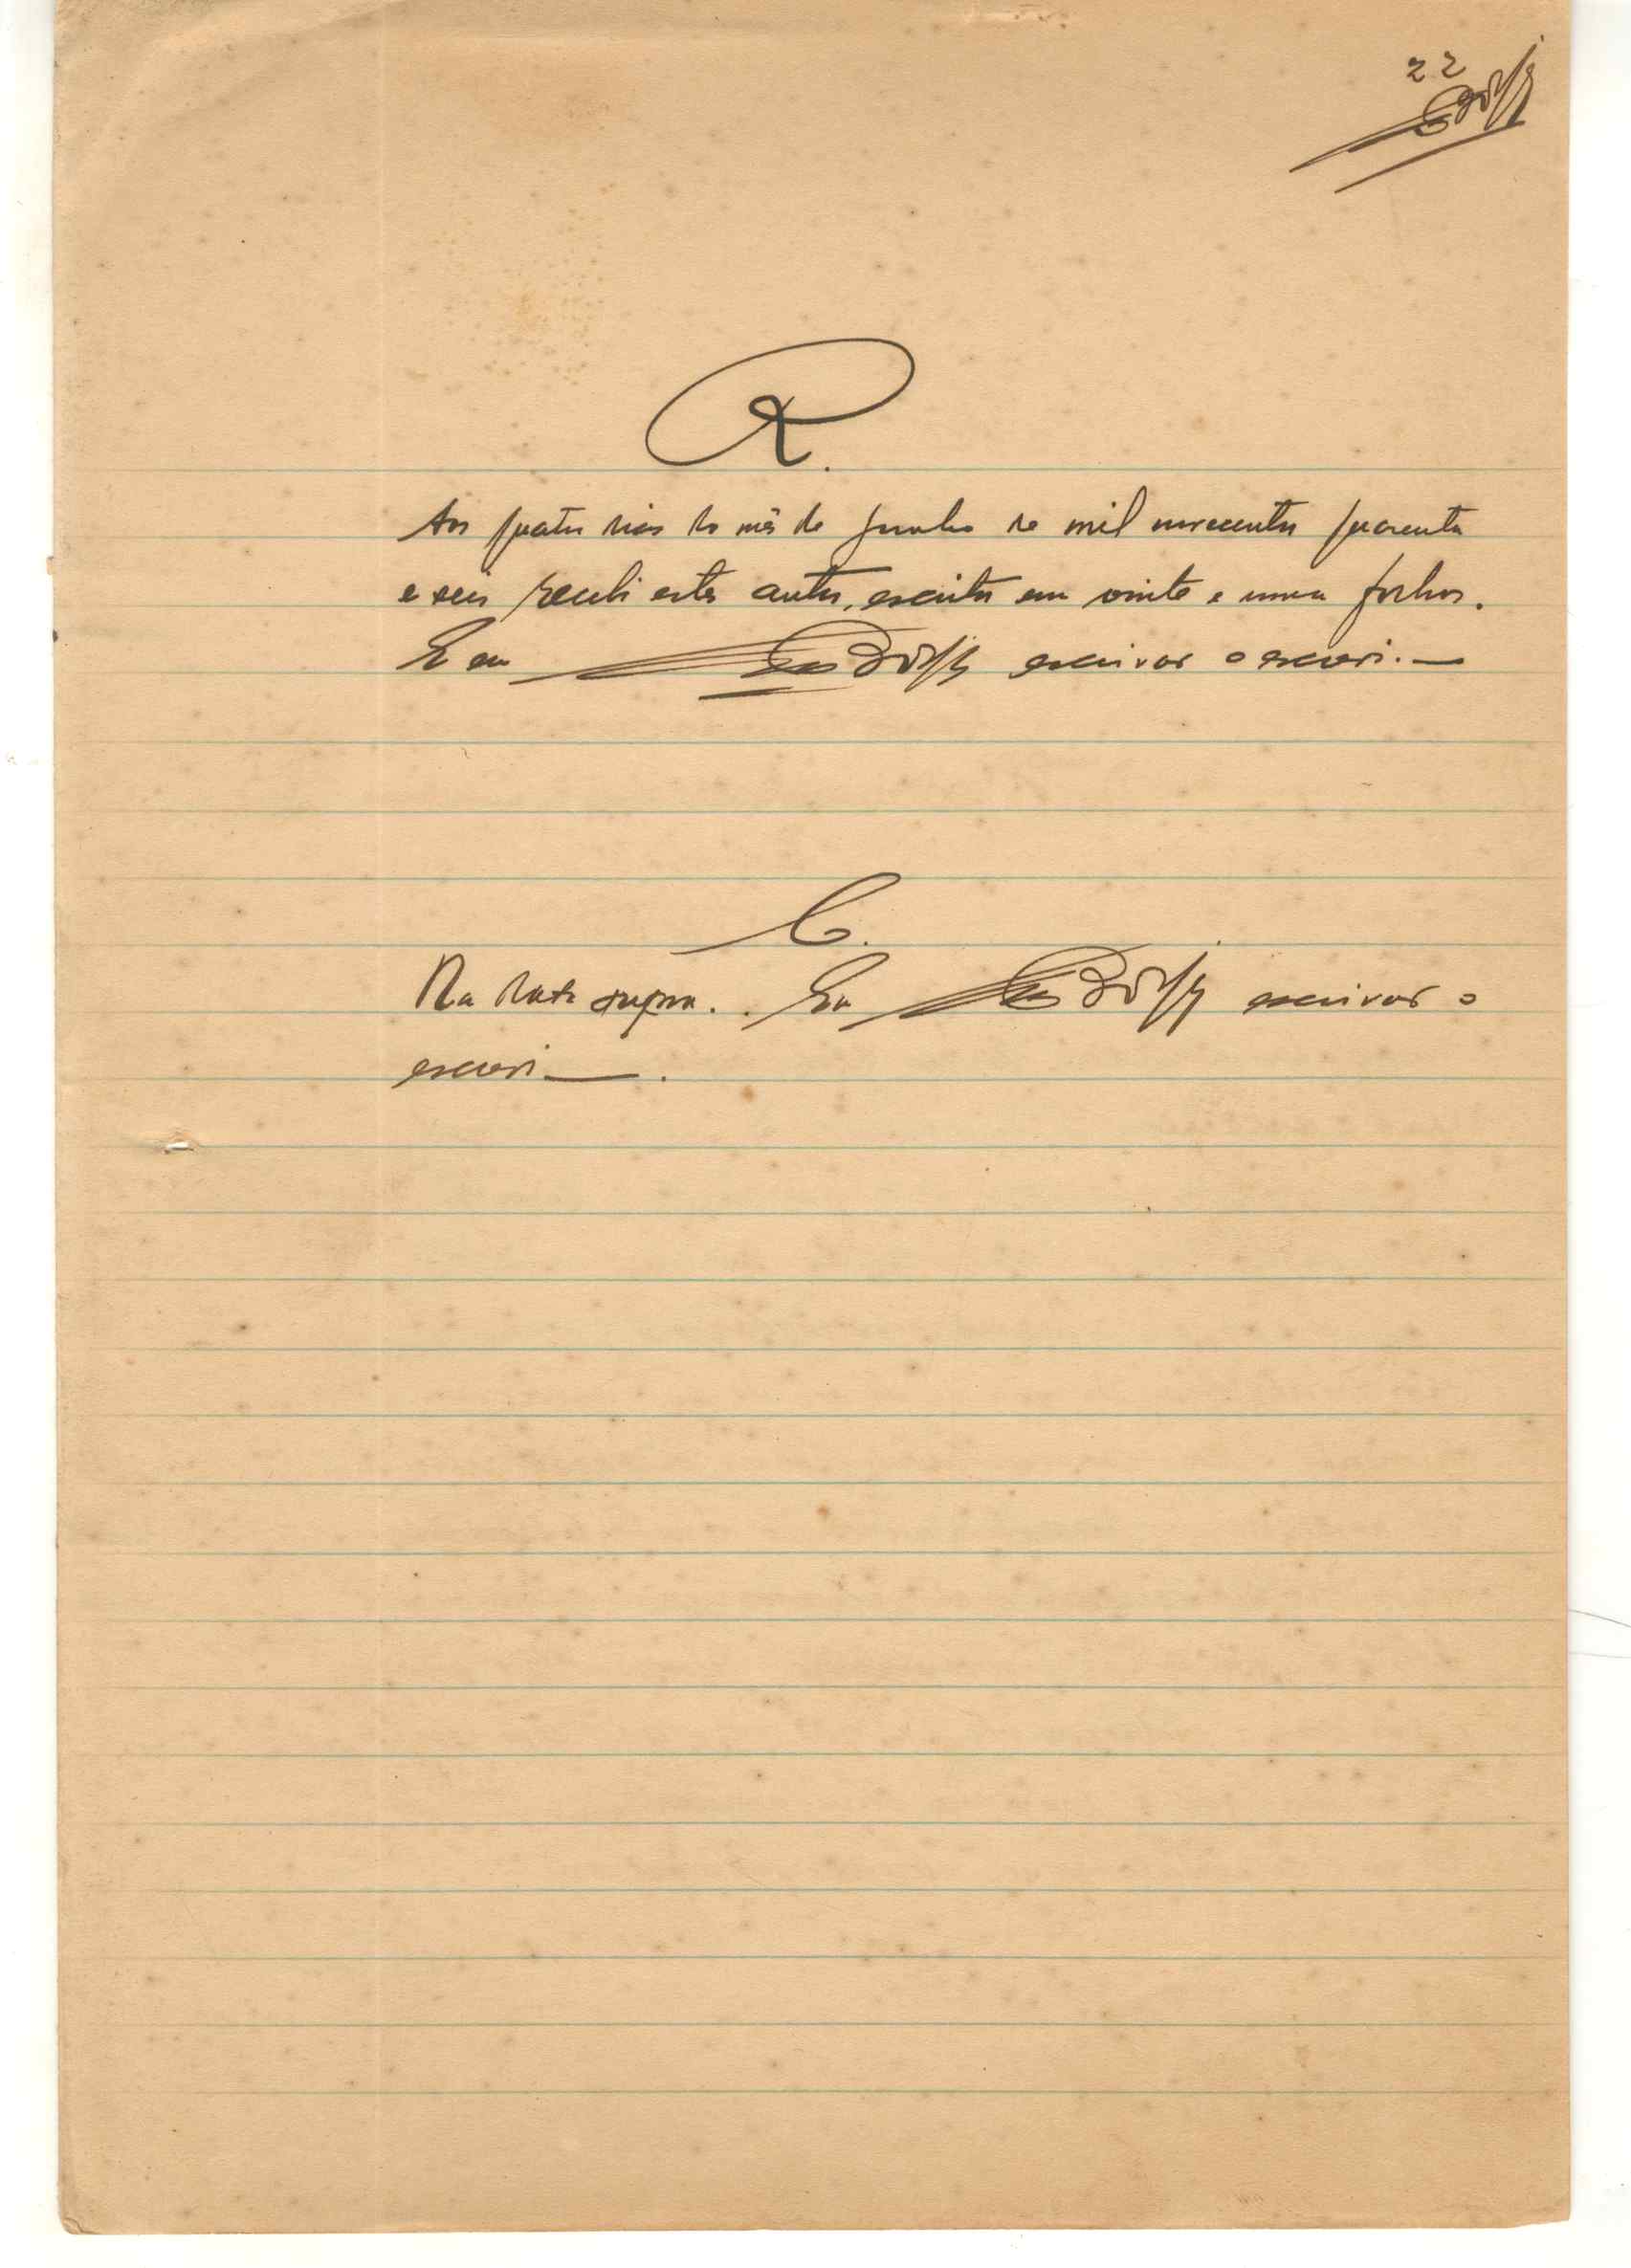 22
R.
Aos quatro dias do mês de Junho de mil novecentos quarenta
e seis recebi estes autos, escritos em vinte e uma folhas.
Eu escrivão o escrevi. —
C.
Na data supra. Eu escrivão o
escrevi —.